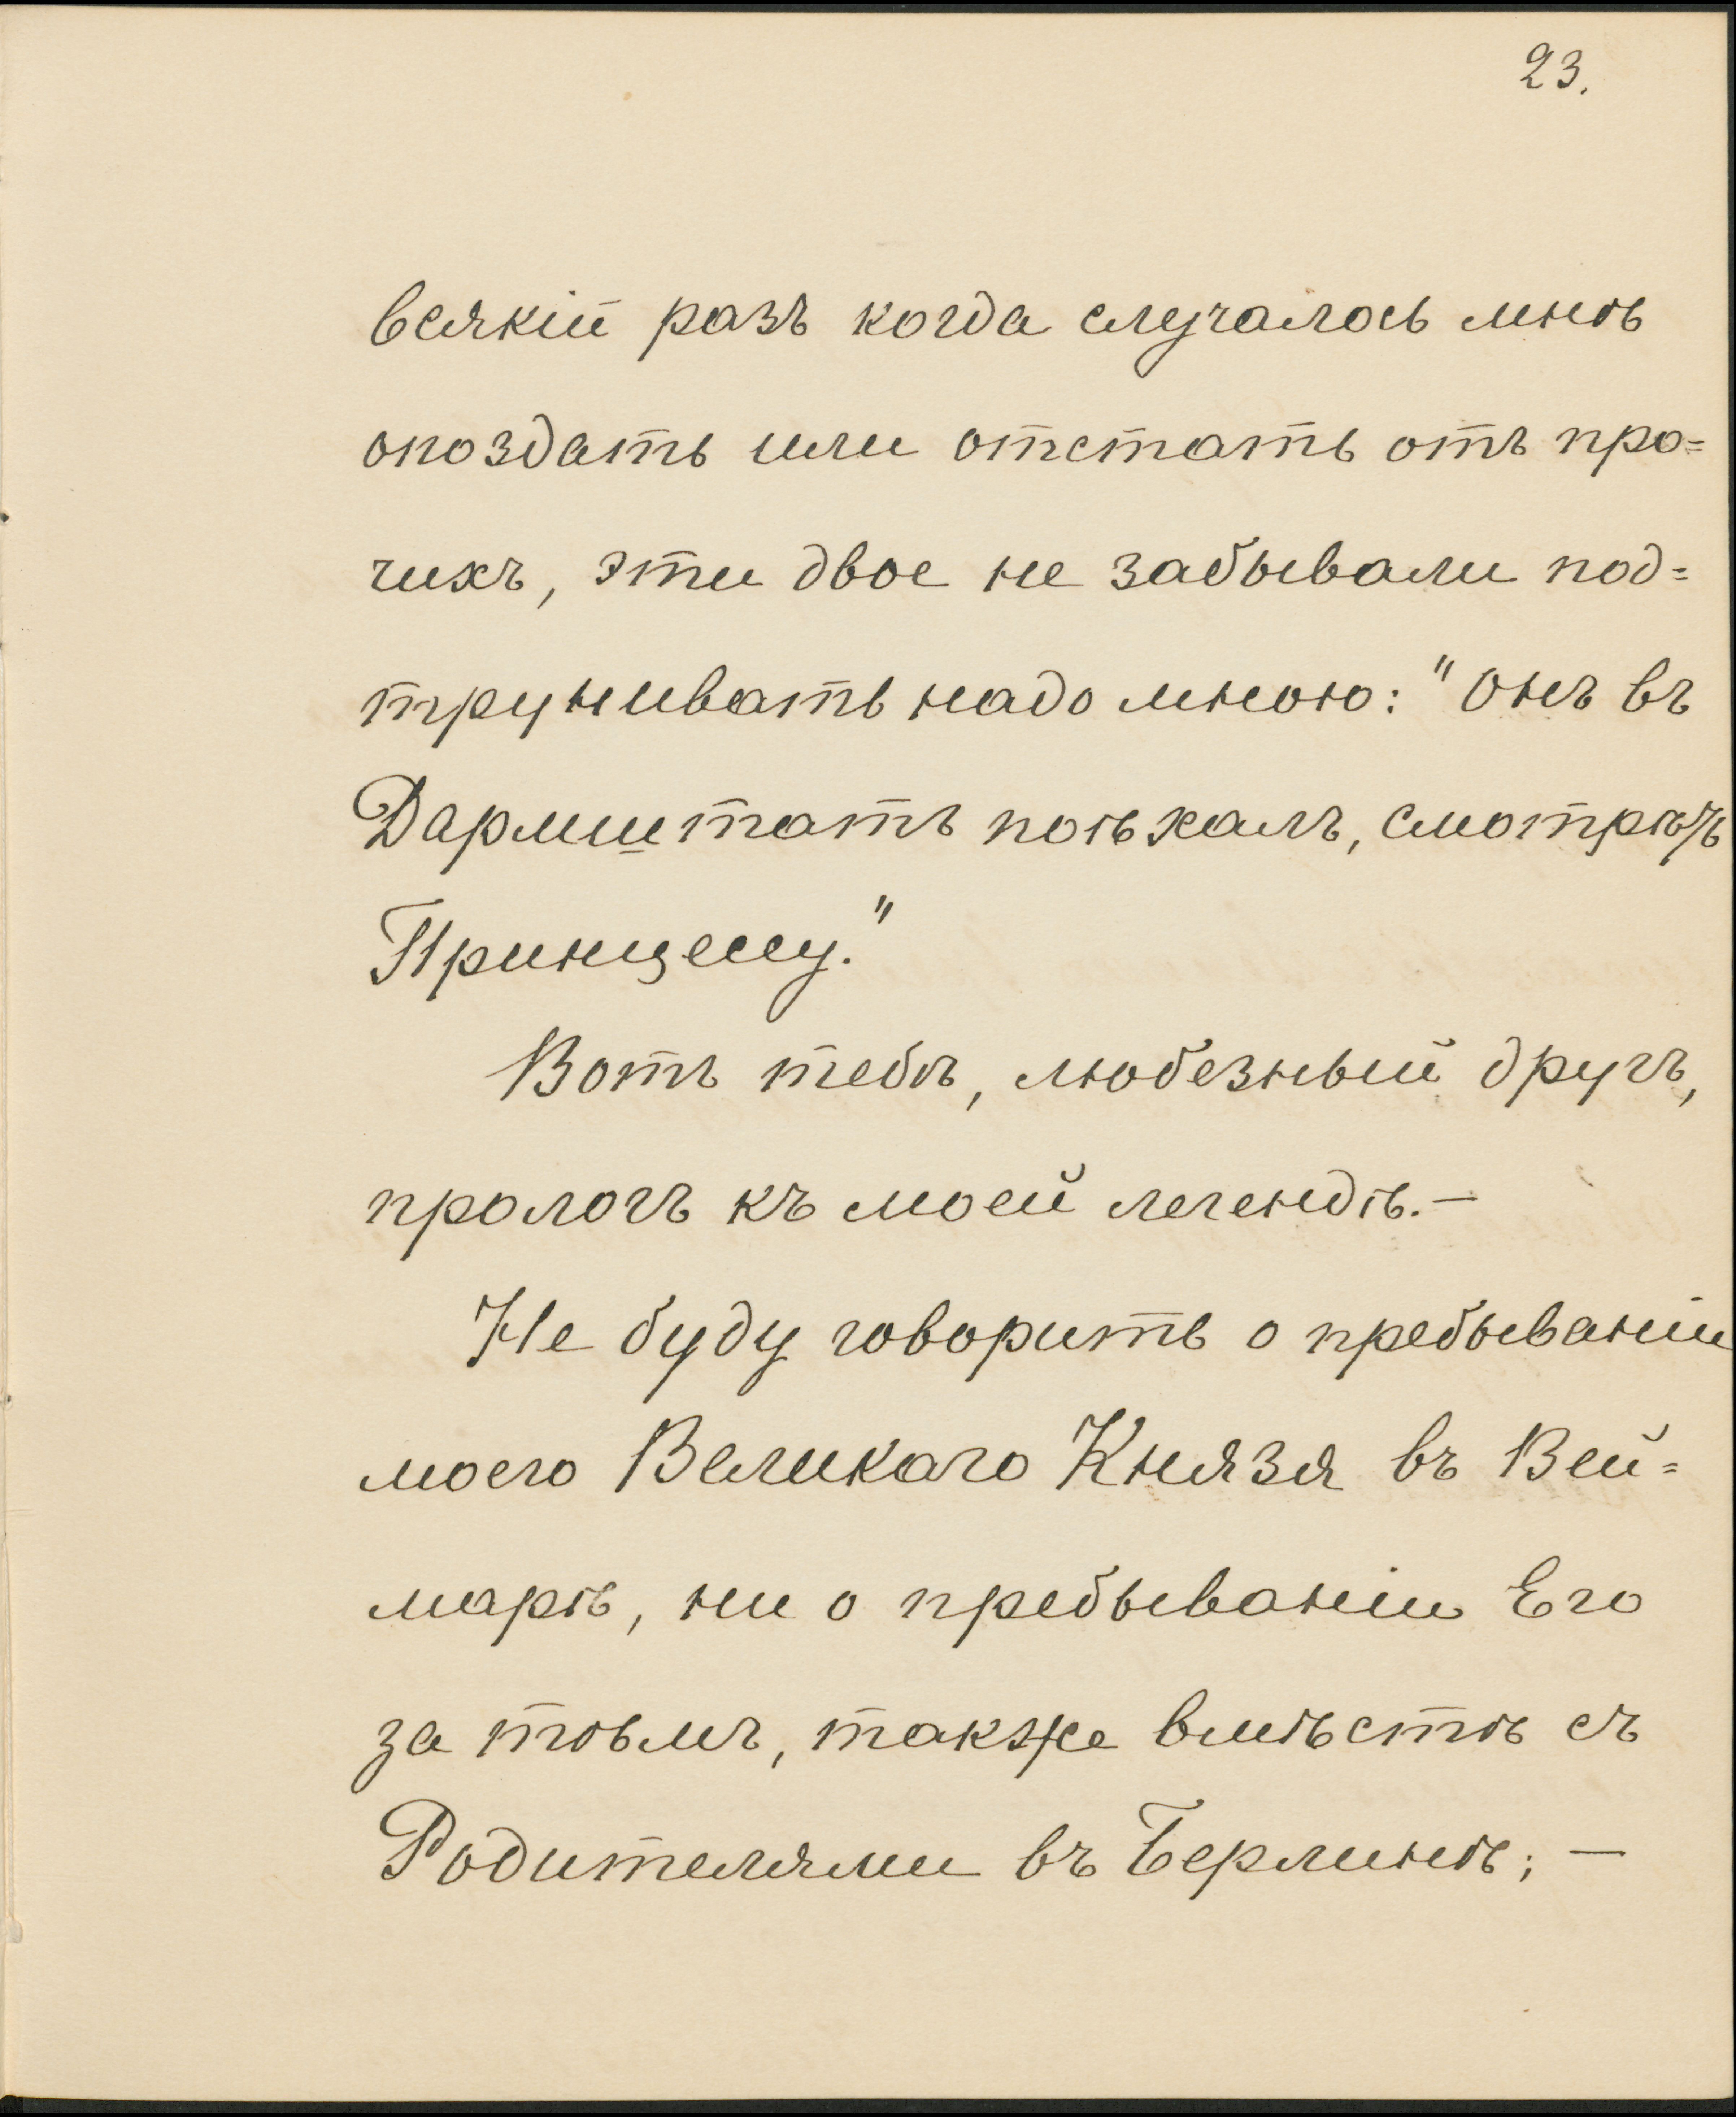 23.
всякій разъ когда случалось мнѣ
опоздать или отстать отъ про=
чихъ, эти двое не забывали под=
трунивать надо мною: "Онъ въ
Дармштатъ поѣхалъ, смотрѣть
Принцессу."
Вотъ тебѣ, любезный другъ,
прологъ къ моей легендѣ.—
Не буду говорить о пребываніи
моего Великаго Князя въ Вей=
марѣ, ни о пребываніи Его
за тѣмъ, также вмѣстѣ съ
Родителями въ Берлинѣ; —